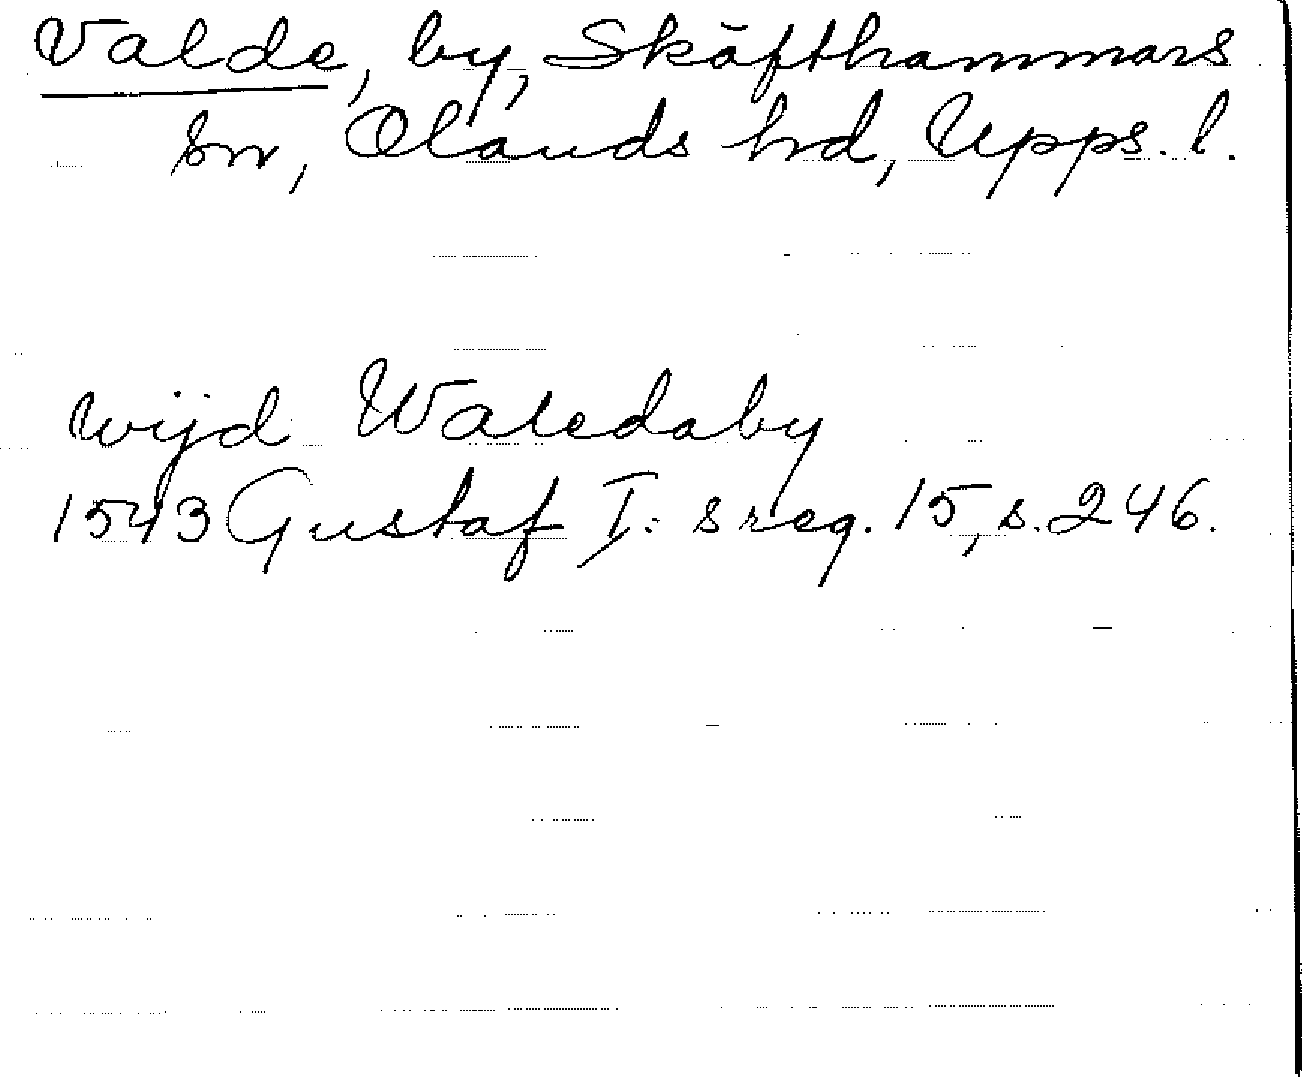 Valde, by, Skäfthammars
sn, Olands hd, Upps. l.
wijd Waledaby
1543 Gustaf I:s reg. 15, s. 246.